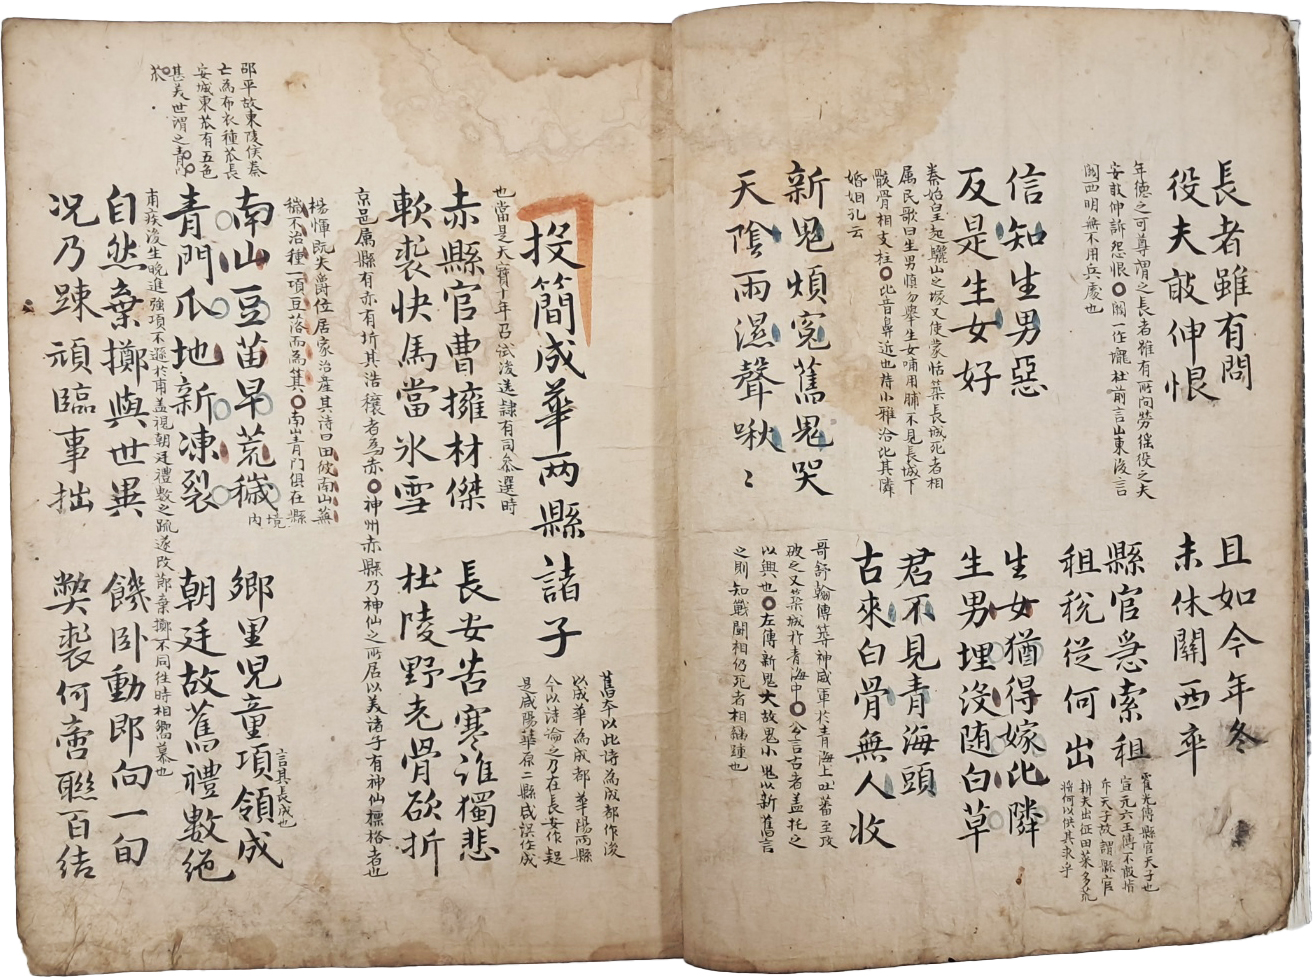 長者雖有問
役夫敢伸恨
年德之可尊謂之長者雖有所向勞徭役之夫
安敢仲訴怨恨〇關一作壠杜前言山東後言
關西明無不用兵處也
且如今年冬
未休關西卒
縣官急索租
租稅從何出
霍光傳縣官天子也
宣元六王傳不敢指
斥天子故謂縣官
耕夫出征田萊多荒
將何以供其求乎
信知生男惡
反是生女好
生女猶得嫁比隣
生男埋没随白草
秦始皇起驪山之塚又使蒙恬築長城死者相
属民歌曰生男慎勿舉生女哺用脯不見長城下
骸骨相支柱〇比音鼻近也詩小雅洽比其隣
婚姻孔云
君不見青海頭
古來白骨無人收
哥舒翰傳築神威軍於青海上吐蕃至攻
破之又築城於青海中〇公言古者盖托之
以興也〇左傳新鬼大故鬼小鬼以新舊言
之則知戰鬪相仍死者相繼踵也
新鬼煩寃舊鬼哭
天陰雨濕聲啾〻
投簡成華两縣諸子
舊本以此詩為成都作後
以成華為成都華陽两縣
今以詩論之乃在長安作起
是咸陽華原二縣咸誤作成
也當是天寶十年召試後送隷有司叅選時
赤縣官曹擁材傑
軟裘快馬當氷雪
長安苦寒誰獨悲
杜陵野老骨欲折
京邑属縣有赤有圻其浩穰者為赤〇神州赤縣乃神仙之所居以美諸子有神仙標格者也
楊惲既失爵位居家治產其詩曰田彼南山蕪
穢不治種一頃豆落而為萁〇南山青门俱在縣
境内
南山豆苗早荒穢
青門瓜地新凍裂
鄉里兒童項領成
言其長成也
朝廷故舊禮數絶
邵平故東陵侯秦
亡為布衣種苽長
安城東苽有五色
甚美世謂之青門
苽
甫疾後生晚進強項不遜於甫盖視朝廷禮數之疏遂致鄙棄擲不同往時相嚮慕也
自然棄擲與世異
况乃踈頑臨事拙
饑卧動即向一旬
弊裘何啻聯百结